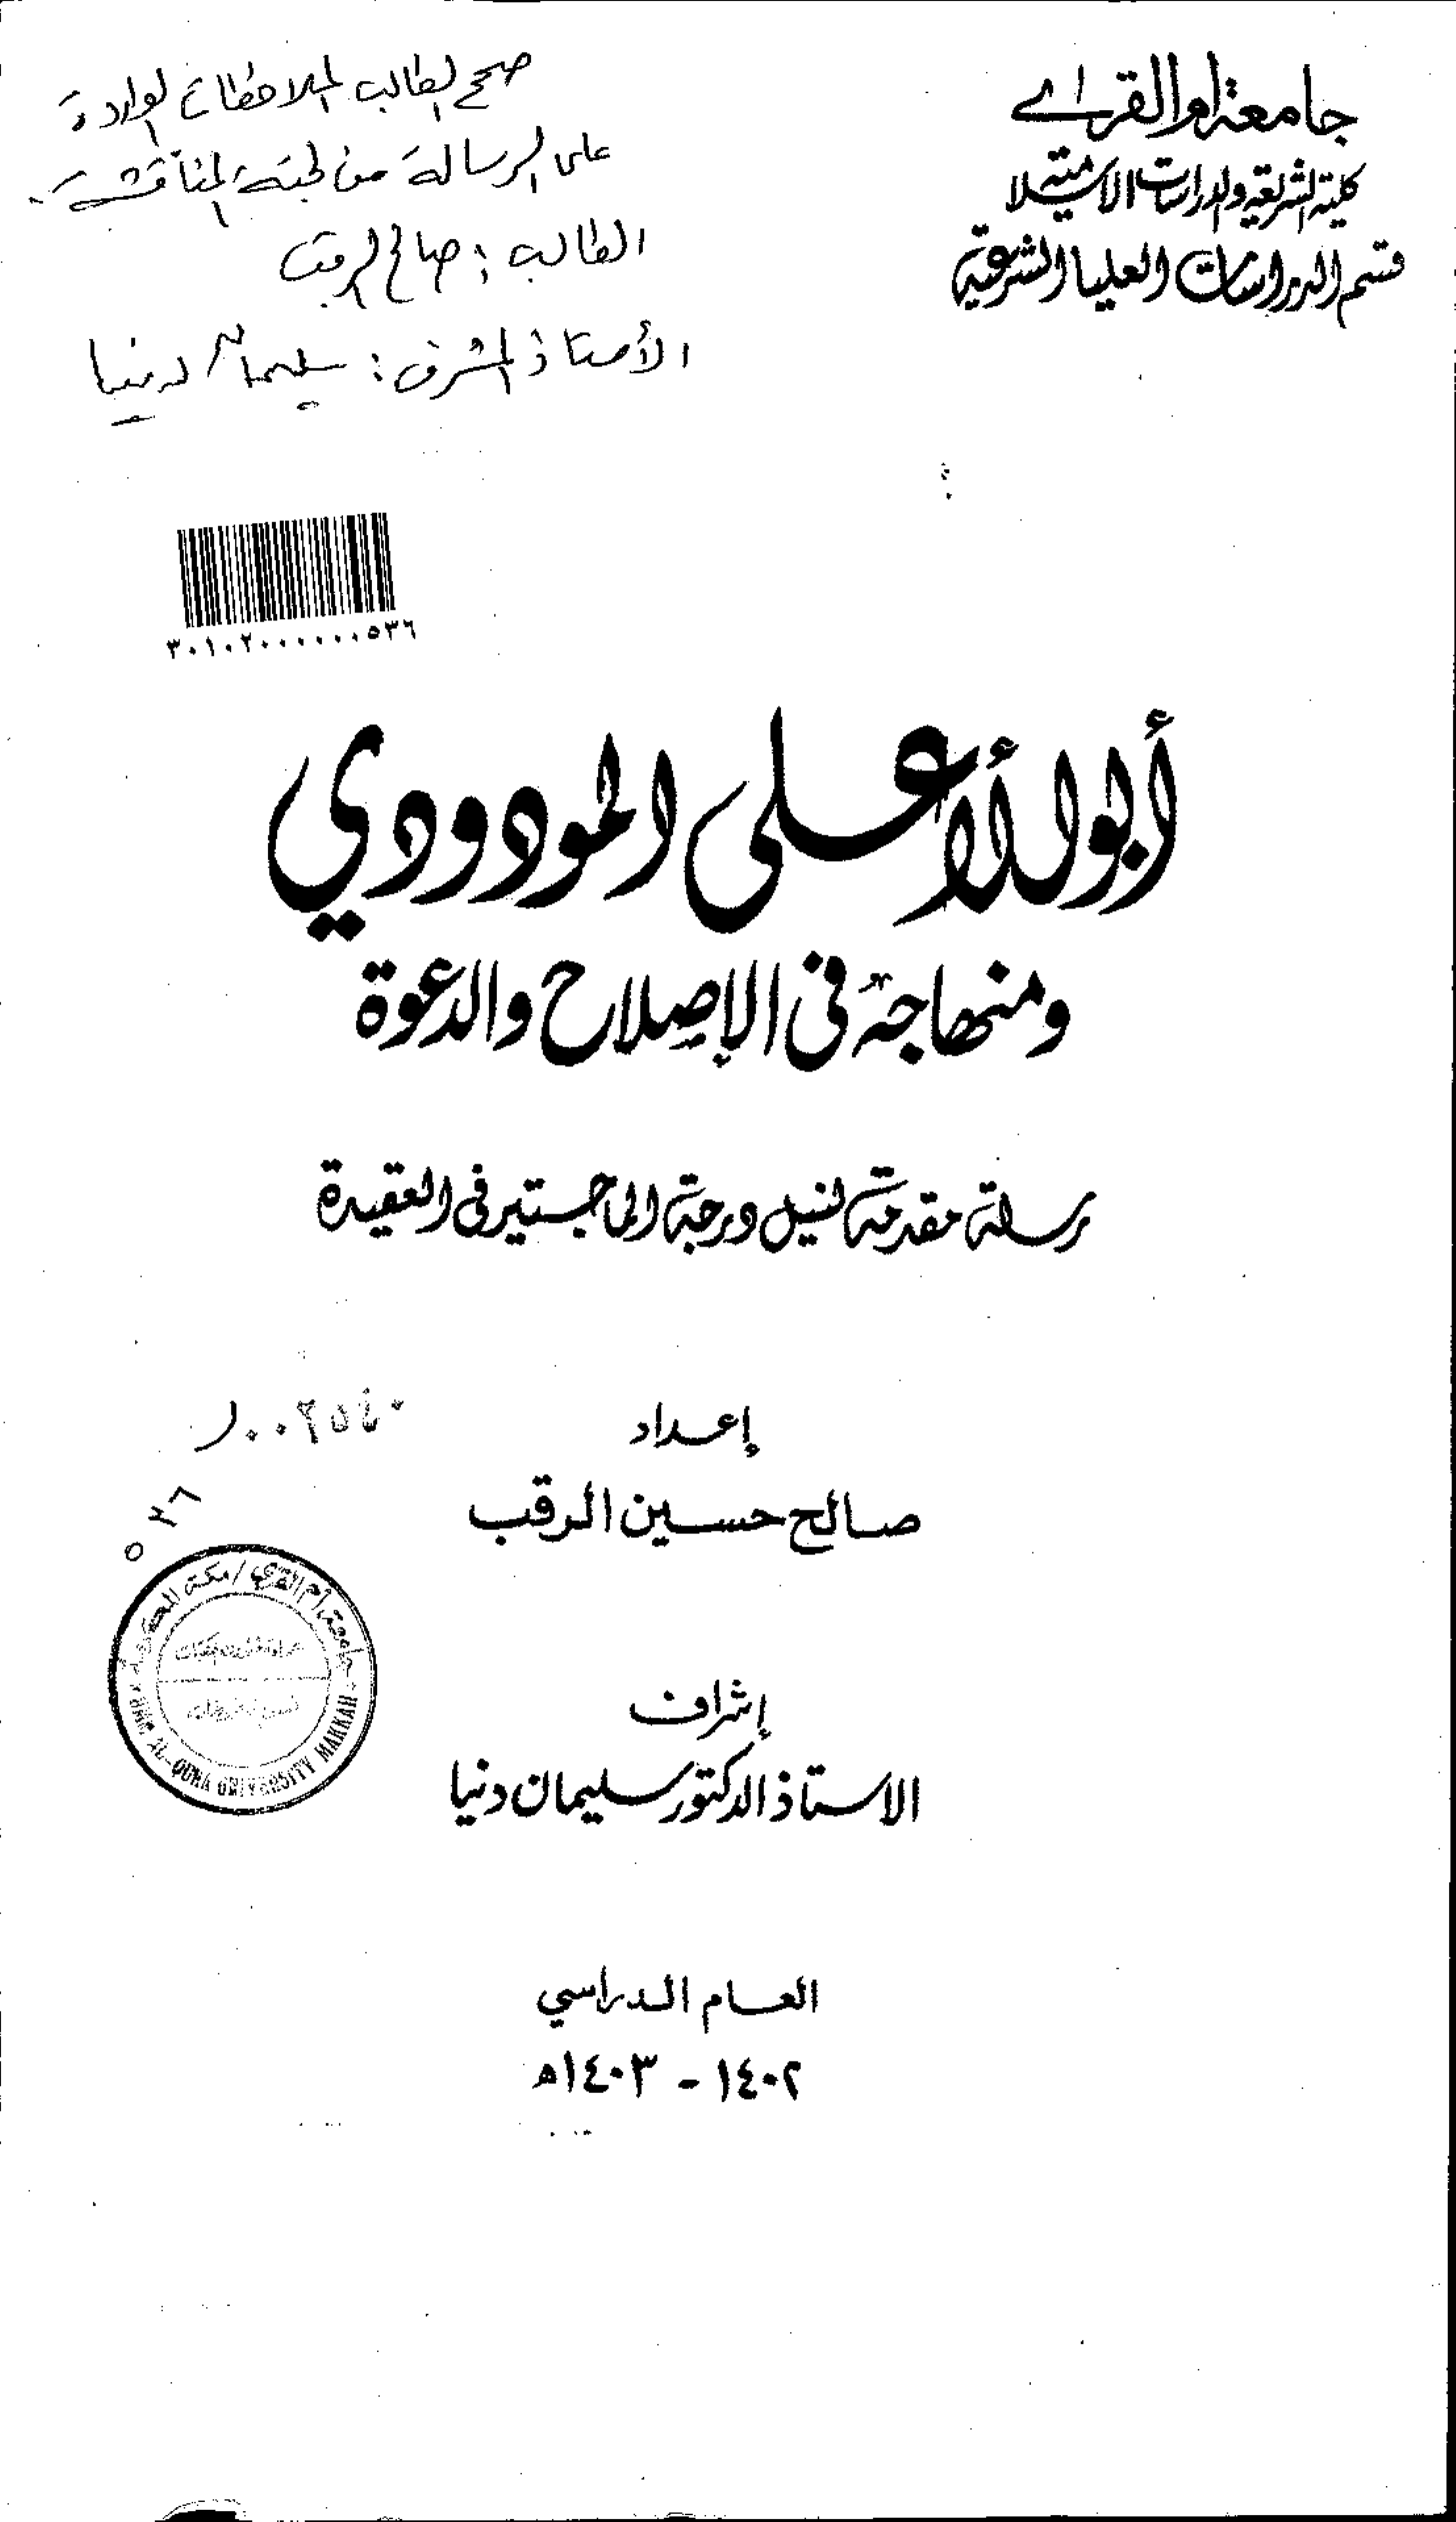 جامعة أم القرى
كلية الشريعة والدراسات الاسلامية
قسم الدراسات العليا الشرعية
صحح الطالب الملاحظات الواردة
على الرسالة من لجنة المناقشة.
الطالب: صالح الرقب
الأستاذ المشرف: سليمان دنيا
٣٠١٠٢٠٠٠٠٠٠٥٣٦
أبو الأعلى المودودي
ومنهاجه في الإصلاح والدعوة
رسالة مقدمة لنيل درجة الماجستير في العقيدة
إعداد
صالح حسين الرقب
٥٣٦
جامعة أم القرى / مكة المكرمة
UMM AL-QURA UNIVERSITY MAKKAH
إشراف
الاستاذ الدكتور سليمان دنيا
العام الدراسي
١٤٠٢ - ١٤٠٣ه